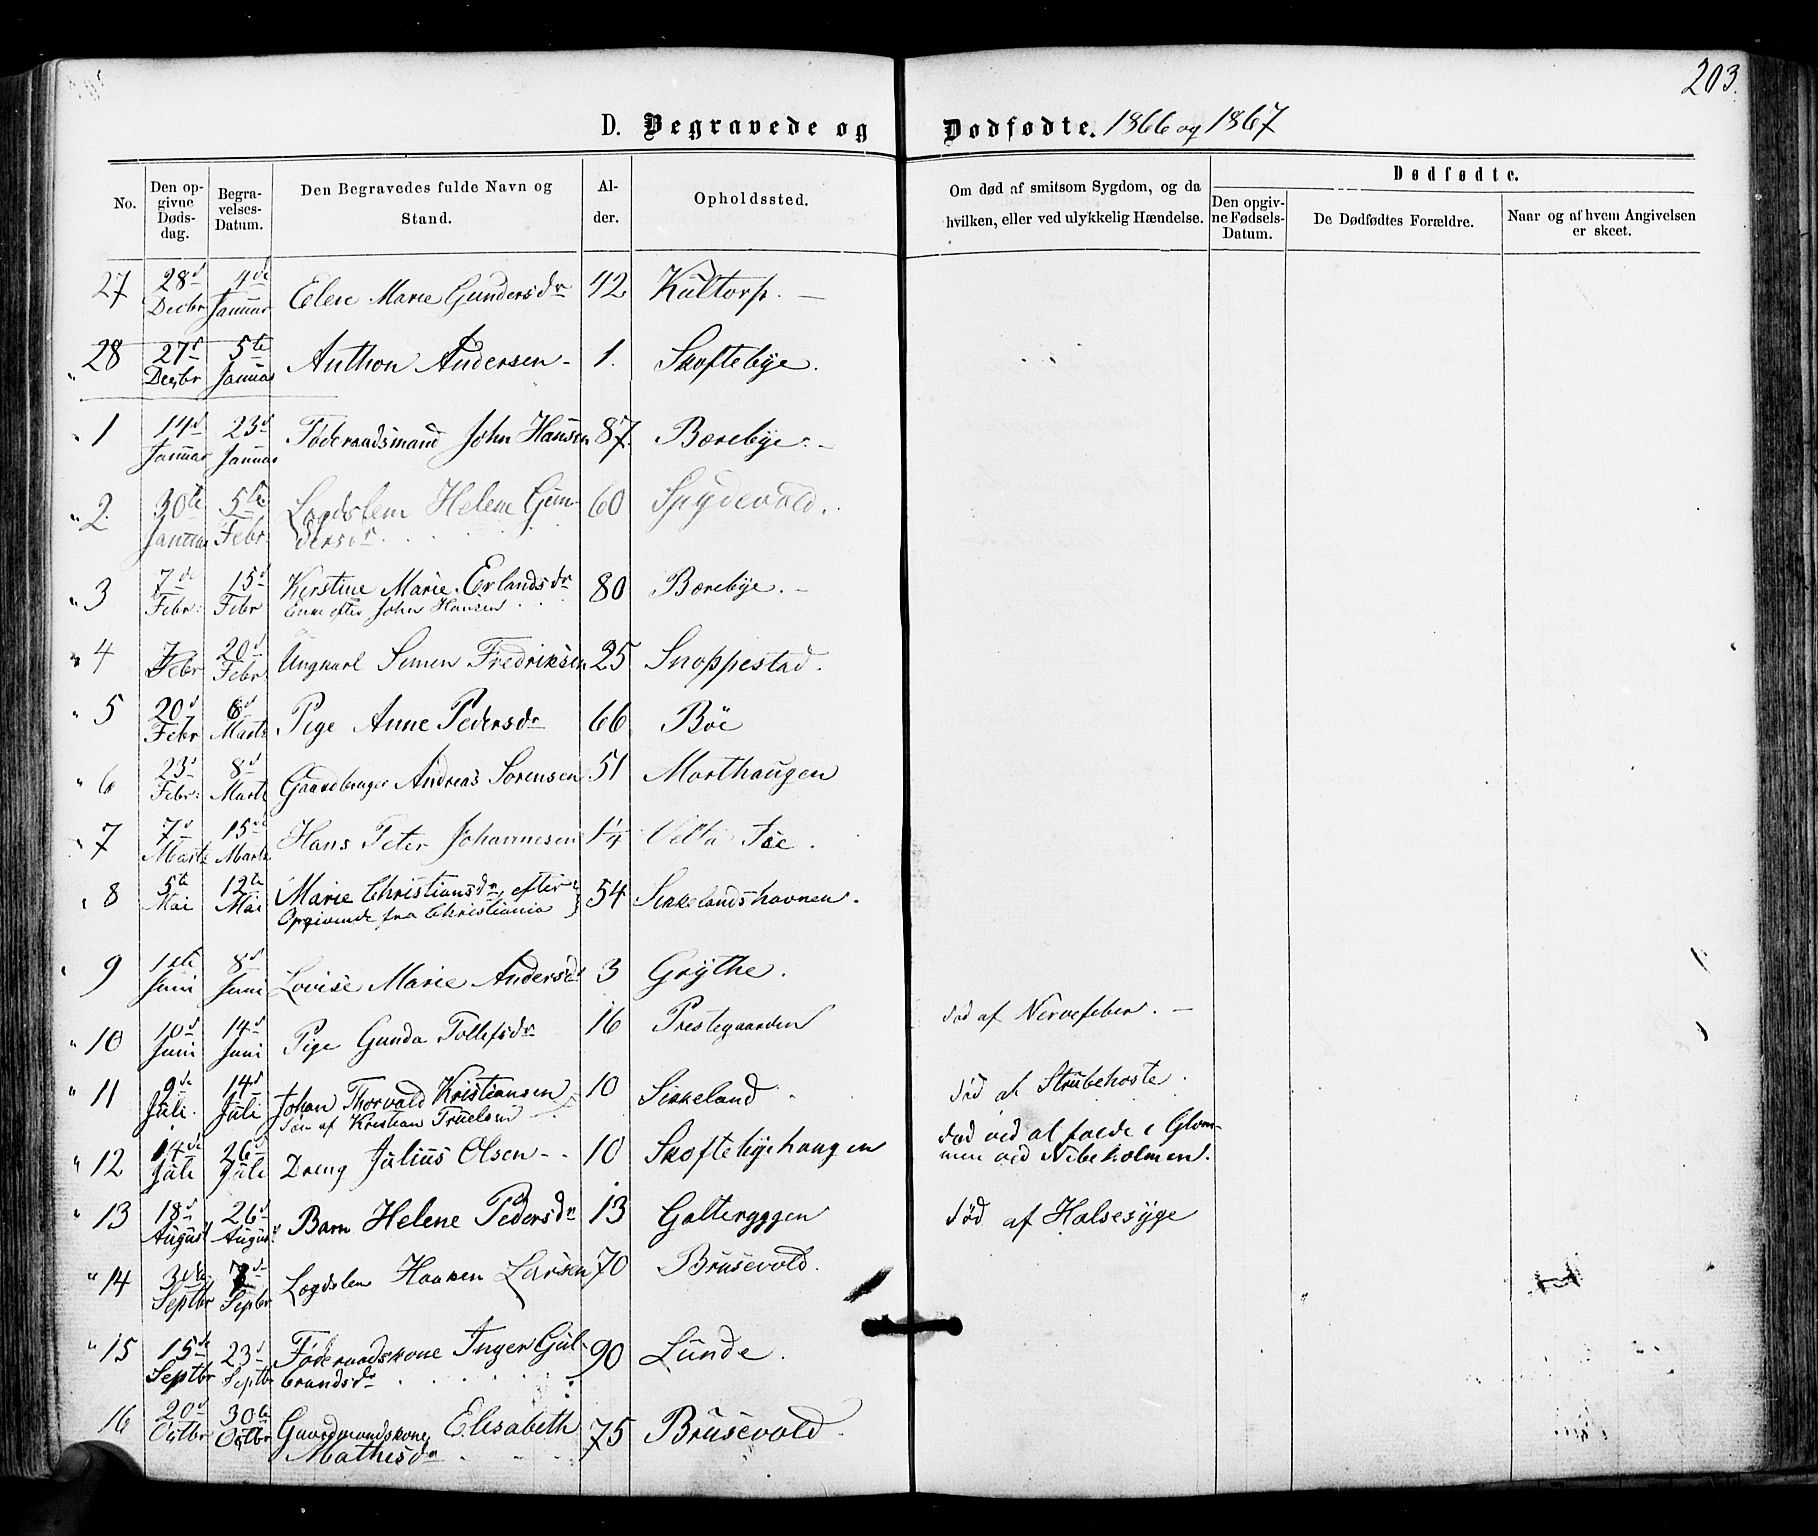 203.
D. Begravede og Dødfødte. 1866 og 1867
No.
Den opgivne Dødsdag.
Begravelses-Datum.
Den Begravedes fulde Navn og Stand.
Alder.
Opholdssted.
Om død af smitsom Sygdom, og da hvilken, eller ved ulykkelig Hændelse.
Dødfødte.
Den opgivne Fødsels-Datum.
De Dødfødtes Forældre.
Naar og af hvem Angivelsen er skeet.
27 28d Decbr 4de Januar Elen Marie Gundersdr 42 Kultorp. —
" 28 27d Decbr 5te Januar Anthon Andersen - 1. Skoftebye.
" 1 14d Januar 23d Januar Føderaadsmand John Hansen 87 Bærebye. -
" 2 30te Januar 5te Febr. Logdslem Helene Gun-
dersdr 60 Spydevold.
" 3 7de Febr: 15d Febr Kerstine Marie Erlandsdr 80 Bærebye. -
Enke efter John Hansen
" 4 7 Febr 20d Febr Ungkarl Simen Fredriksen 25 Snoppestad.
" 5 20d Febr 8d Marts Pige Anne Pedersdr 66 Böe
" 6 23d Febr: 8d Marts Gaardbruger Andreas Sørensen 51 Morthaugen
" 7 7d Marts 15de Marts Hans Peter Johannesen 1/4
" 8 5te Mai 12te Mai Marie Christiansdr, efter 54 Sikkelandshavnen.
Opgivende fra Christiania
" 9 1ste Juni 8d Juni Lovise Marie Andersdr 3 Grythe.
" 10 10d Juni 14d Juni Pige Gunda Tollefsdr 16 Prestegaarden død af Nervefeber. -
" 11 9de Juli. 14d Juli Johan Thorvald Kristiansen 10 Sikkeland død af Strubehoste.
Søn af Kristian Truelsen
" 12 14de Juli 26d Juli Dreng Julius Olsen - 10 Skoftebyehaugen død ved at falde i Glom-
men ved Nibeholmen.
" 13 18d August 26d August Barn Helene Pedersdr 13 Galteryggen død af Halsesyge
" 14 3die Septbr Septbr Logdslem Haaken Larsen 70 Brusevold.
" 15 15de Septbr 23d Septbr Føderaadskone Inger Gul-
brandsdr 90 Lunde.
16 20d Octbr 30te Octbr Gaardmandskone Elisabeth
Mathisdr 75 Brusevold.